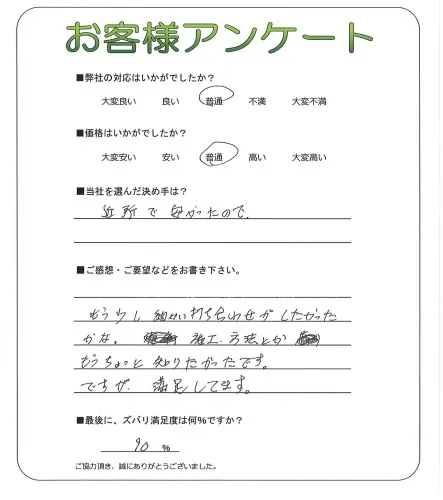 お客様アンケート
■弊社の対応はいかがでしたか？
大変良い 良い 普通 不満 大変不満
■価格はいかがでしたか？
大変安い 安い 普通 高い 大変高い
■当社を選んだ決め手は？
近所で安かったので、
■ご感想・ご要望などをお書き下さい。
もう少し細かい打ち合わせがしたかった
かな。施工、方法とか
もうちょっと知りたかったです。
ですが、満足してます。
■最後に、ズバリ満足度は何％ですか？
90 %
ご協力頂き、誠にありがとうございました。